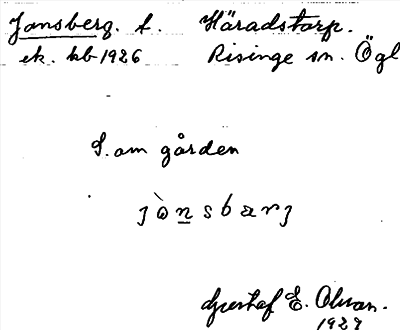 Jonsberg. t. Häradstorp.
ek. kb 1926 Risinge sn. Ögl
S. om gården
ȷònsbarȷ
Gusthaf E. Olsson.
1927